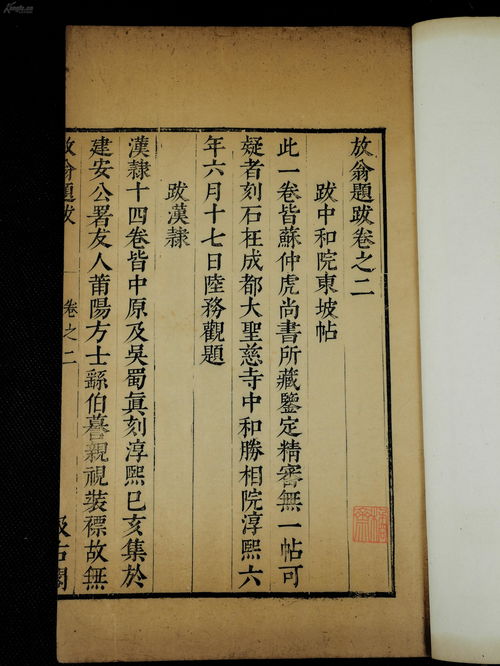 放翁題跋卷之二
跋中和院東坡帖
此一卷皆蘇仲虎尚書所藏鑒定精審無一帖可
疑者刻石在成都大聖慈寺中和勝相院淳熙六
年六月十七日陸務觀題
跋漢隸
漢隸十四卷皆中原及吳蜀真刻淳熙己亥集於
建安公署友人莆陽方士繇伯謩親視裝褾故無
放翁題跋
卷之二
汲古閣